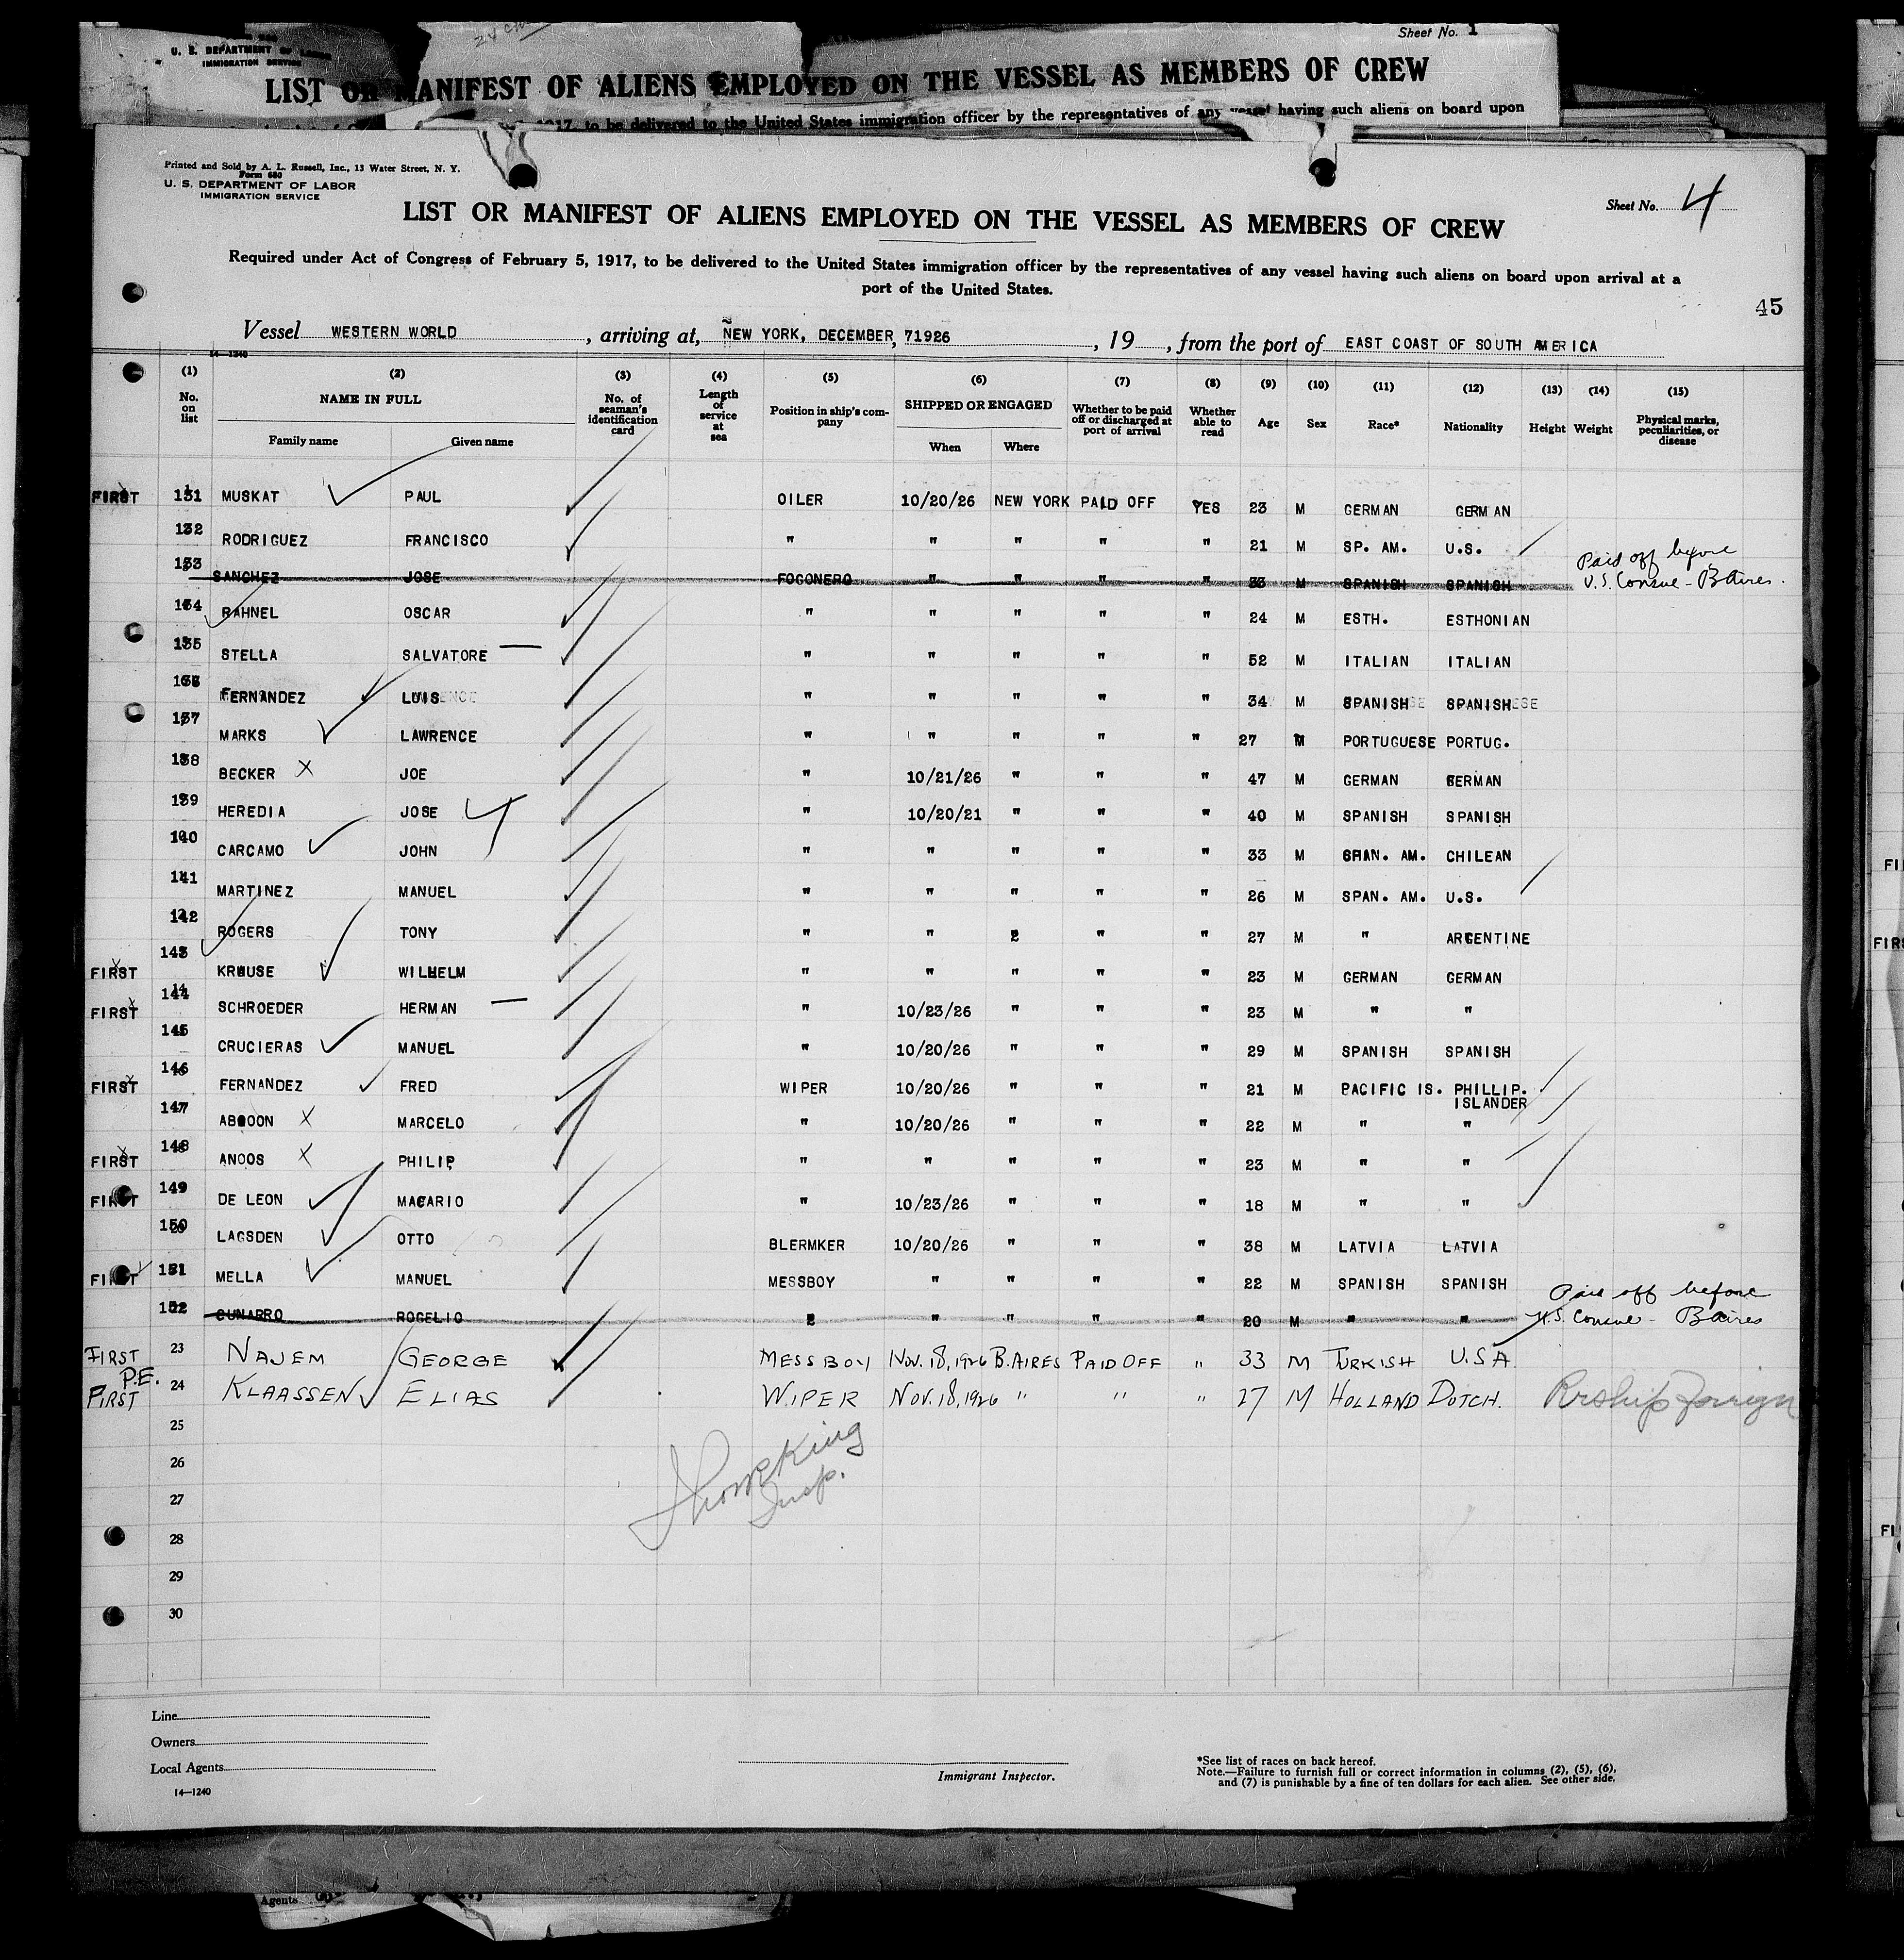 U. S. DEPARTMENT OF LABOR
IMMIGRATION SERVICE
Sheet No. 1
LIST OR MANIFEST OF ALIENS EMPLOYED ON THE VESSEL AS MEMBERS OF CREW
1917, to be delivered to the United States immigration officer by the representatives of any vessel having such aliens on board upon
Printed and Sold by A. L. Russell, Inc., 13 Water Street, N. Y.
Form 680
U. S. DEPARTMENT OF LABOR
IMMIGRATION SERVICE
Sheet No. 4
LIST OR MANIFEST OF ALIENS EMPLOYED ON THE VESSEL AS MEMBERS OF CREW
Required under Act of Congress of February 5, 1917, to be delivered to the United States immigration officer by the representatives of any vessel having such aliens on board upon arrival at a
port of the United States.
45
Vessel WESTERN WORLD, arriving at, NEW YORK, DECEMBER, 71926, 19, from the port of EAST COAST OF SOUTH AMERICA
14—1240
(1) (2) (3) (4) (5) (6) (7) (8) (9) (10) (11) (12) (13) (14) (15)
No. on list NAME IN FULL Family name Given name No. of seaman's identification card Length of service at sea Position in ship's company SHIPPED OR ENGAGED When Where Whether to be paid off or discharged at port of arrival Whether able to read Age Sex Race* Nationality Height Weight Physical marks, peculiarities, or disease
FIRST 131 MUSKAT PAUL OILER 10/20/26 NEW YORK PAID OFF YES 23 M GERMAN GERMAN
132 RODRIGUEZ FRANCISCO " " " " " 21 M SP. AM. U.S.
133 SANCHEZ JOSE FOGONERO " " " " 33 M SPANISH SPANISH Paid off before U.S. Consul - B Aires.
134 RAHNEL OSCAR " " " " " 24 M ESTH. ESTHONIAN
135 STELLA SALVATORE " " " " " 52 M ITALIAN ITALIAN
136 FERNANDEZ LUIS " " " " " 34 M SPANISH SPANISH
137 MARKS LAWRENCE " " " " " 27 M PORTUGUESE PORTUG.
138 BECKER JOE " 10/21/26 " " " 47 M GERMAN GERMAN
139 HEREDIA JOSE " 10/20/21 " " " 40 M SPANISH SPANISH
140 CARCAMO JOHN " " " " " 33 M SPAN. AM. CHILEAN
141 MARTINEZ MANUEL " " " " " 26 M SPAN. AM. U.S.
142 ROGERS TONY " " 2 " " 27 M " ARGENTINE
FIRST 143 KRUUSE WILHELM " " " " " 23 M GERMAN GERMAN
FIRST 144 SCHROEDER HERMAN " 10/23/26 " " " 23 M " "
145 CRUCIERAS MANUEL " 10/20/26 " " " 29 M SPANISH SPANISH
FIRST 146 FERNANDEZ FRED WIPER 10/20/26 " " " 21 M PACIFIC IS. PHILLIP. ISLANDER
147 ABOOON MARCELO " 10/20/26 " " " 22 M " "
FIRST 148 ANOOS PHILIP " " " " " 23 M " "
FIRST 149 DE LEON MACARIO " 10/23/26 " " " 18 M " "
150 LAGSDEN OTTO BLERMKER 10/20/26 " " " 38 M LATVIA LATVIA
FIRST 151 MELLA MANUEL MESSBOY " " " " 22 M SPANISH SPANISH
152 CUNARRO ROGELIO 2 " " " " 20 M " " Paid off before U.S. Consul - B Aires
FIRST 23 NAJEM GEORGE MESSBOY NOV. 18, 1926 B. AIRES PAID OFF " 33 M TURKISH U.S.A.
P.E.
FIRST 24 KLAASSEN ELIAS WIPER NOV. 18, 1926 " " " 27 M HOLLAND DUTCH. Reship foreign
25
26
27
28
29
30
Insp.
Line
Owners
Local Agents
14—1240
Immigrant Inspector.
*See list of races on back hereof.
Note.—Failure to furnish full or correct information in columns (2), (5), (6),
and (7) is punishable by a fine of ten dollars for each alien. See other side.
Agents